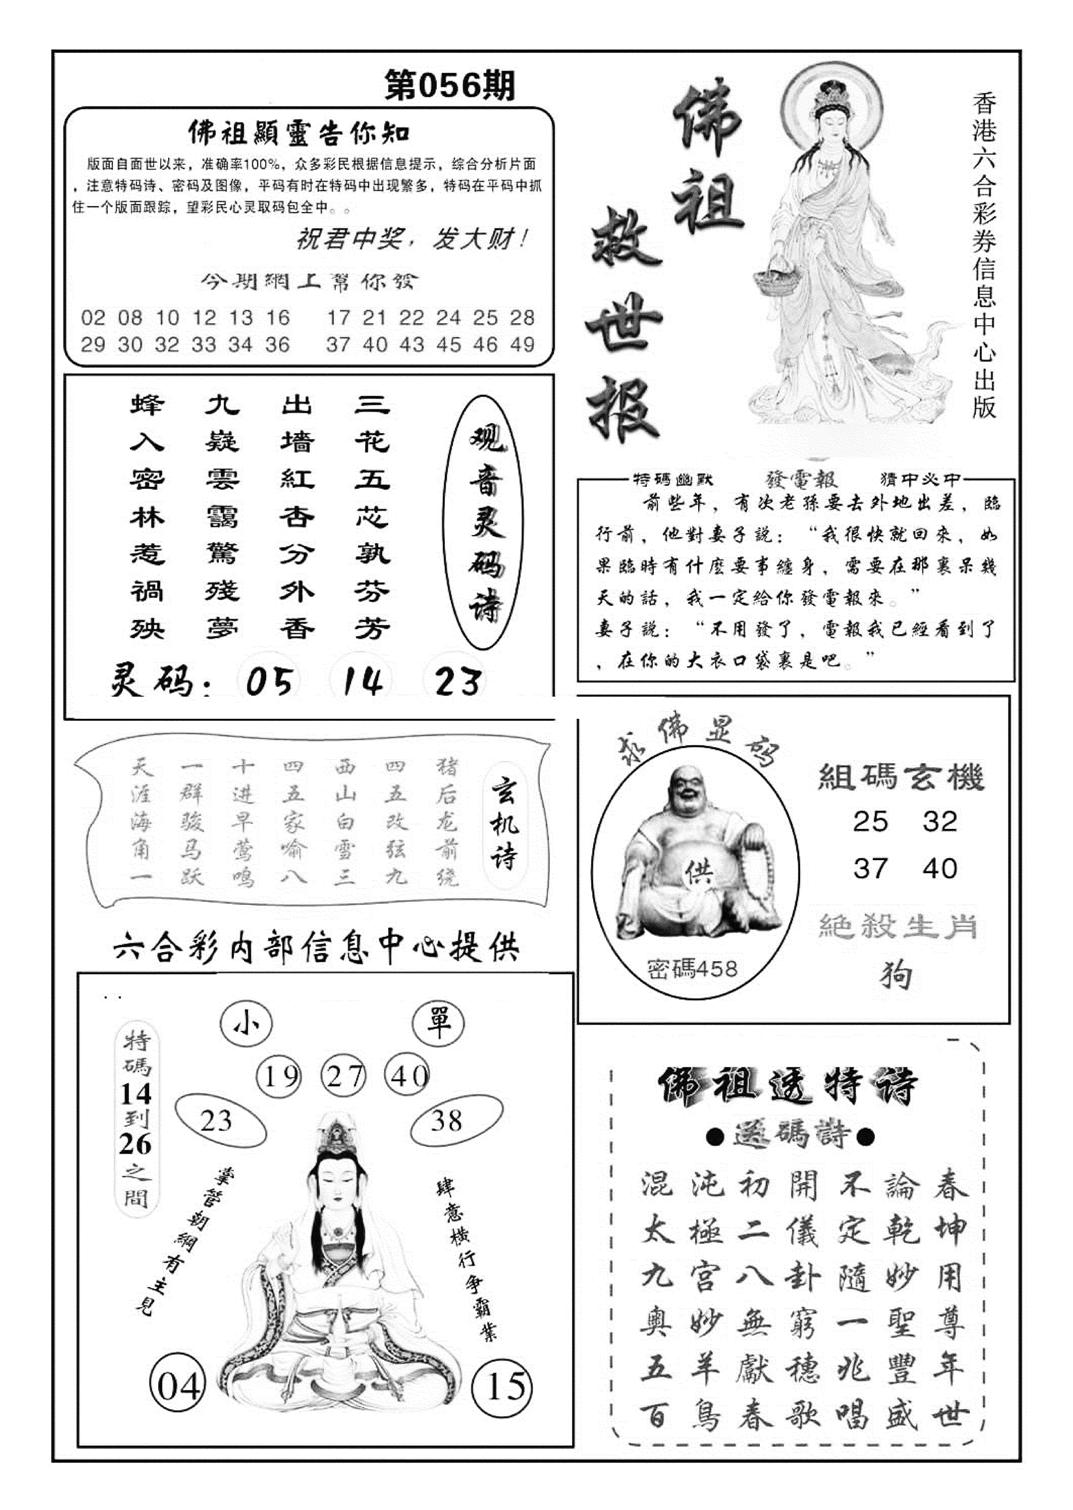 第056期
佛祖顯靈告你知
版面自面世以来，准确率100%，众多彩民根据信息提示，综合分析片面
，注意特码诗、密码及图像，平码有时在特码中出现繁多，特码在平码中抓
住一个版面跟踪，望彩民心灵取码包全中。。
祝君中奖，发大财！
今期網上幫你發
02 08 10 12 13 16 17 21 22 24 25 28
29 30 32 33 34 36 37 40 43 45 46 49
佛祖
救世报
香港六合彩券信息中心出版
观音灵码诗
三花五芯孰芬芳
出墙紅杏分外香
九嶷雲靄驚殘夢
蜂入密林惹禍殃
灵码：05 14 23
特碼幽默 發電報 猜中必中
前些年，有次老孫要去外地出差，臨
行前，他對妻子説：“我很快就回來，如
果臨時有什麼要事纏身，需要在那裏呆幾
天的話，我一定給你發電報來。”
妻子説：“不用發了，電報我已經看到了
，在你的大衣口袋裏是吧。”
玄机诗
猪后龙前绕
四五改弦九
西山白雪三
四五家喻八
十进早莺鸣
一群骏马跃
天涯海角一
求佛显码
供
密碼458
組碼玄機
25 32
37 40
絶殺生肖
狗
六合彩内部信息中心提供
特碼14到26之間
小 單
19 27 40
23 38
掌管朝綱有主見
肆意橫行争霸業
04 15
佛祖透特诗
●送碼詩●
混沌初開不論春
太極二儀定乾坤
九宮八卦隨妙用
奧妙無窮一聖尊
五羊獻穗兆豐年
百鳥春歌唱盛世